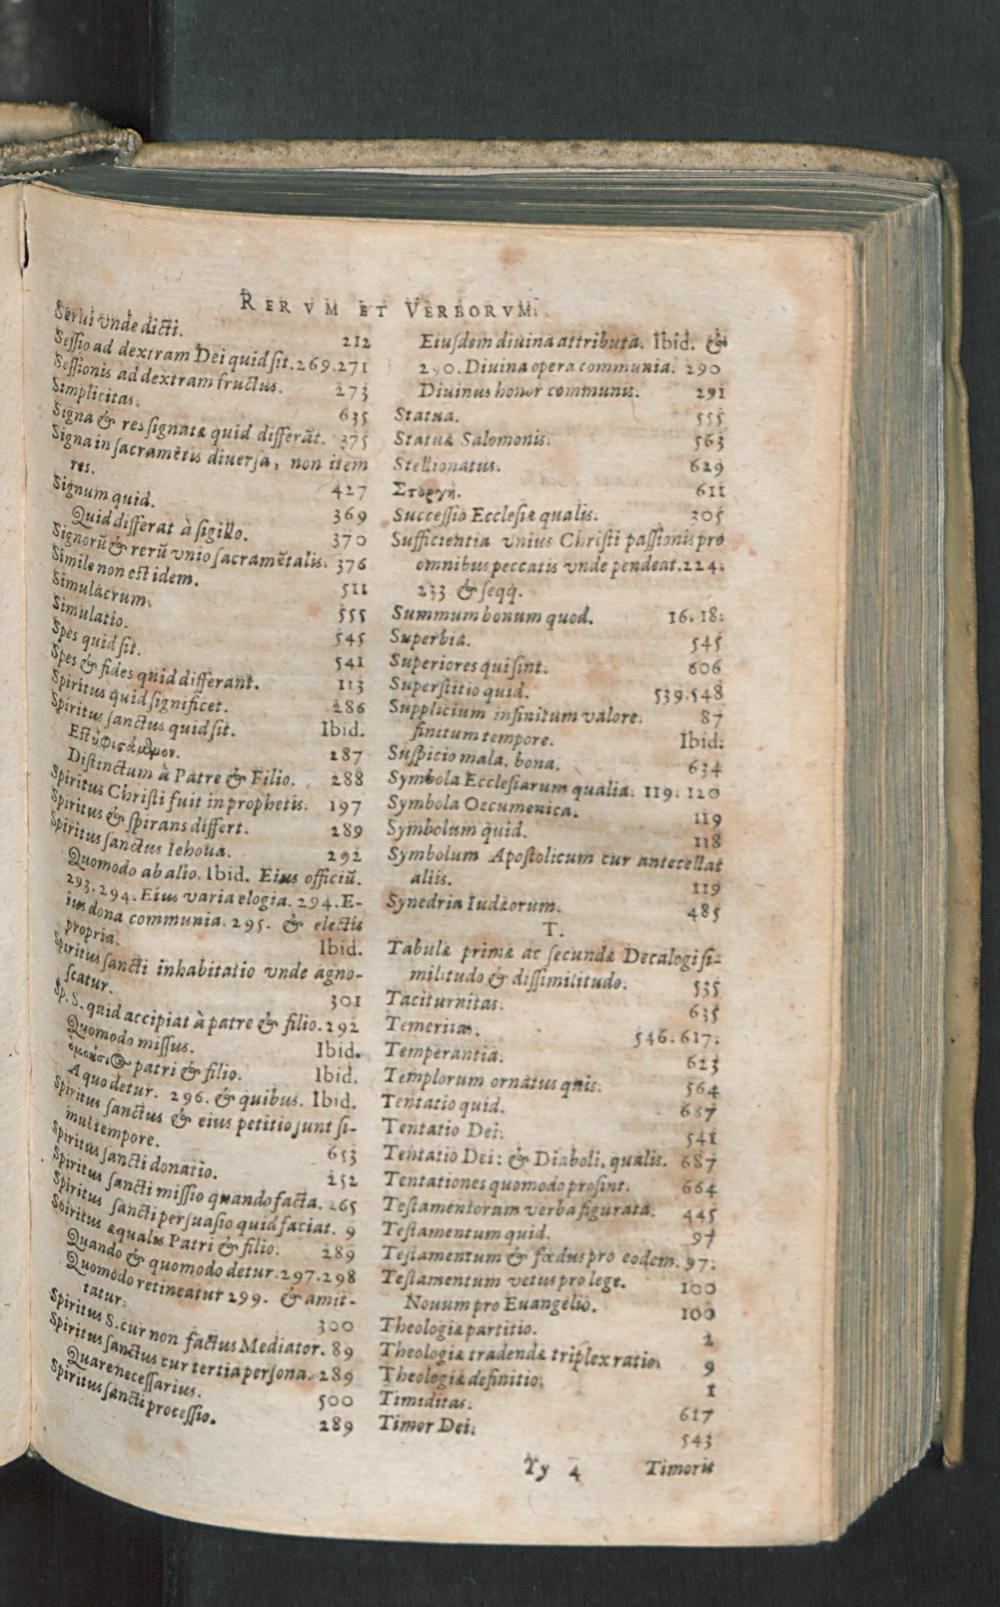 RERVM ET VERBORVM.
Serui vnde dicti. 212
Sessio ad dextram Dei quid sit. 269.271
Sessionis ad dextram fructus. 273
Simplicitas. 635
Signa & res signatæ quid differãt. 375
Signa in sacramẽtis diuersa, non item
res. 427
Signum quid. 369
Quid differat à sigillo. 370
Signorũ & rerũ vnio sacramẽtalis. 376
Simile non est idem. 511
Simulacrum. 555
Simulatio. 545
Spes quid sit. 541
Spes & fides quid differant. 113
Spiritus quid significet. 286
Spiritus sanctus quid sit. Ibid.
Est ὑφιστάμενον. 287
Distinctum à Patre & Filio. 288
Spiritus Christi fuit in prophetis. 197
Spiritus & spirans differt. 289
Spiritus sanctus Iehoua. 292
Quomodo ab alio. Ibid. Eius officiũ.
293.294. Eius varia elogia. 294. E-
ius dona communia. 295. & electis
propria. Ibid.
Spiritus sancti inhabitatio vnde agno-
scatur. 301
Sp. S. quid accipiat à patre & filio. 292
Quomodo missus. Ibid.
ὁμούσιος patri & filio. Ibid.
A quo detur. 296. & quibus. Ibid.
Spiritus sanctus & eius petitio sunt si-
mul tempore. 653
Spiritus sancti donatio. 252
Spiritus sancti missio quando facta. 265
Spiritus sancti persuasio quid faciat. 9
Spiritus æqualis Patri & filio. 289
Quando & quomodo detur. 297.298
Quomodo retineatur 299. & amit-
tatur. 300
Spiritus S. cur non factus Mediator. 89
Spiritus sanctus cur tertia persona. 289
Quare necessarius. 500
Spiritus sancti processio. 289
Eiusdem diuina attributa. Ibid. &
290. Diuina opera communia. 290
Diuinus honor communis. 291
Statua. 555
Statuæ Salomonis. 563
Stellionatus. 629
Στοργή. 611
Successio Ecclesiæ qualis. 305
Sufficientia vnius Christi passionis pro
omnibus peccatis vnde pendeat. 224.
233 & seqq.
Summum bonum quod. 16.18.
Superbia. 545
Superiores qui sint. 606
Superstitio quid. 539.548
Supplicium infinitum valore. 87
finitum tempore. Ibid.
Suspicio mala, bona. 634
Symbola Ecclesiarum qualia. 119. 120
Symbola Oecumenica. 119
Symbolum quid. 118
Symbolum Apostolicum cur antecellat
aliis. 119
Synedria Iudæorum. 485
T.
Tabulæ primæ ac secundæ Decalogi si-
militudo & dissimilitudo. 535
Taciturnitas. 635
Temeritas. 546.617.
Temperantia. 623
Templorum ornatus quis. 564
Tentatio quid. 687
Tentatio Dei. 541
Tentatio Dei: & Diaboli, qualis. 687
Tentationes quomodo prosint. 664
Testamentorum verba figurata. 445
Testamentum quid. 97
Testamentum & fœdus pro eodem. 97.
Testamentum vetus pro lege. 100
Nouum pro Euangelio. 100
Theologiæ partitio. 2
Theologiæ tradendæ triplex ratio. 9
Theologiæ definitio. 1
Timiditas. 617
Timor Dei. 543
Yy 4 Timoris